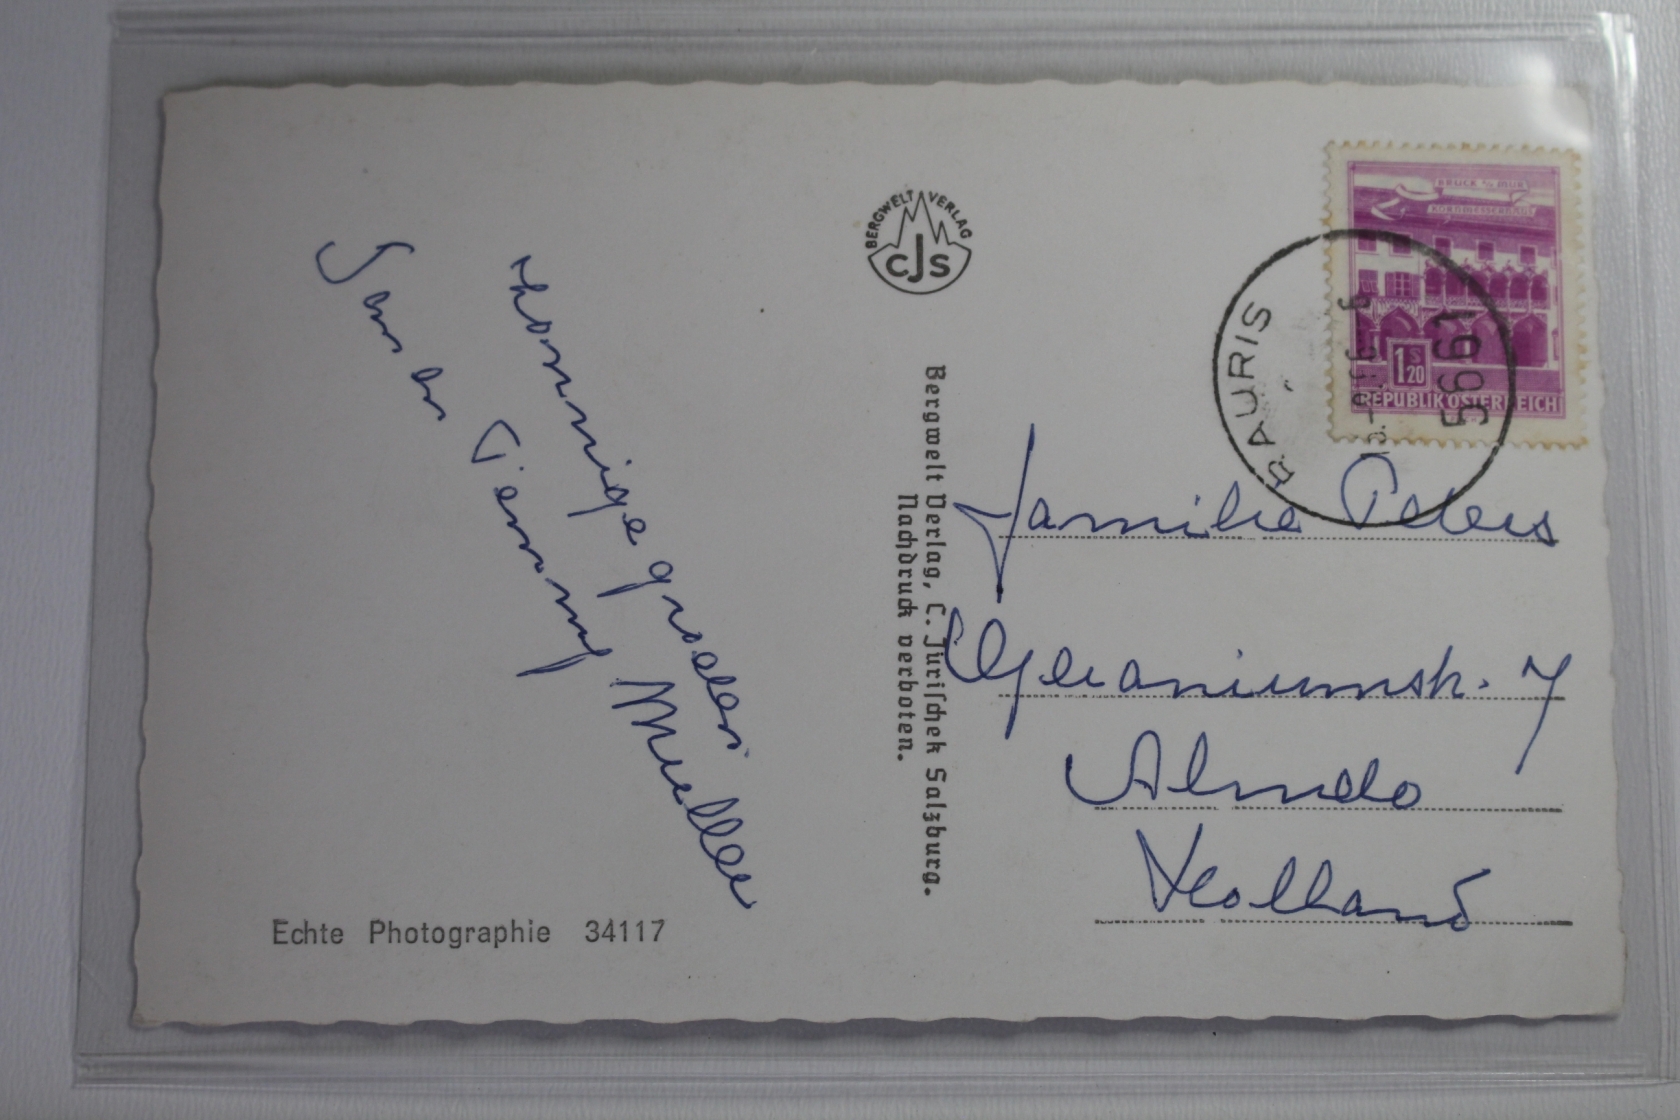 Zonnige groeten
Jan en Tenny Mueller
Echte Photographie 34117
BERGWELT VERLAG
CJS
Bergwelt Verlag, C. Jurischek Salzburg.
Nachdruck verboten.
BRUCK A/D MUR
KORNMESSERHAUS
1 S 20
REPUBLIK ÖSTERREICH
RAURIS
1965
Familie Peters
Geraniumstr. 7
Almelo
Holland